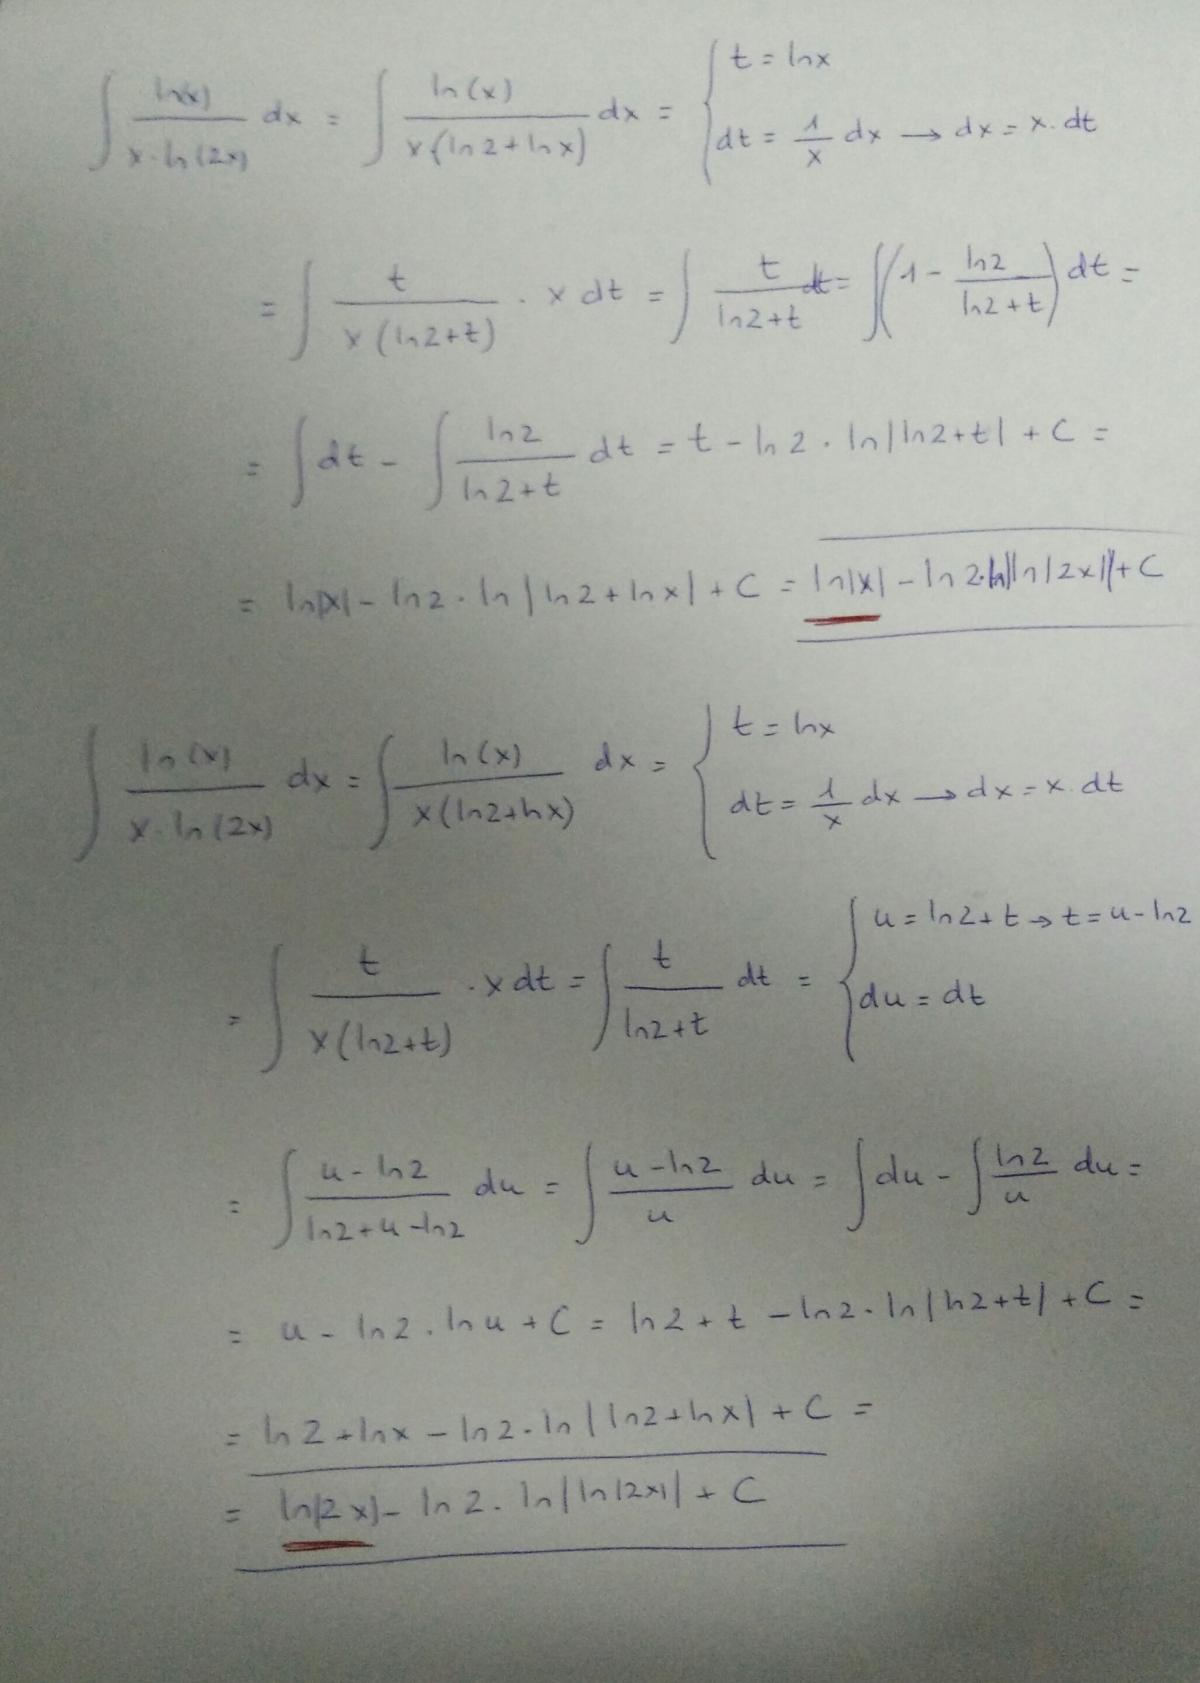 ∫ ln(x)/(x·ln(2x)) dx = ∫ ln(x)/(x(ln2+lnx)) dx = { t = lnx
dt = 1/x dx → dx = x·dt
= ∫ t/(x(ln2+t)) · x dt = ∫ t/(ln2+t) dt = ∫(1 - ln2/(ln2+t)) dt =
= ∫ dt - ∫ ln2/(ln2+t) dt = t - ln2 · ln|ln2+t| + C =
= ln|x| - ln2 · ln|ln2+lnx| + C = ln|x| - ln2·ln|ln|2x|| + C
∫ ln(x)/(x·ln(2x)) dx = ∫ ln(x)/(x(ln2+lnx)) dx = { t = lnx
dt = 1/x dx → dx = x·dt
= ∫ t/(x(ln2+t)) · x dt = ∫ t/(ln2+t) dt = { u = ln2+t → t = u-ln2
du = dt
= ∫ (u-ln2)/(ln2+u-ln2) du = ∫ (u-ln2)/u du = ∫ du - ∫ ln2/u du =
= u - ln2 · ln u + C = ln2 + t - ln2 · ln|ln2+t| + C =
= ln2 + lnx - ln2 · ln|ln2+lnx| + C =
= ln|2x| - ln2 · ln|ln|2x|| + C